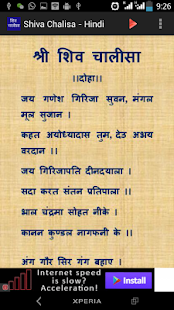 9:26
Shiva Chalisa - Hindi
श्री शिव चालीसा
।।दोहा।।
जय गणेश गिरिजा सुवन, मंगल
मूल सुजान ।
कहत अयोध्यादास तुम, देउ अभय
वरदान ।।
जय गिरिजापति दीनदयाला ।
सदा करत संतन प्रतिपाला ।।
भाल चंद्रमा सोहत नीके ।
कानन कुण्डल नागफनी के ।।
अंग गौर सिर गंग बहाए ।
Internet speed
is slow?
Acceleration!
Install
XPERIA